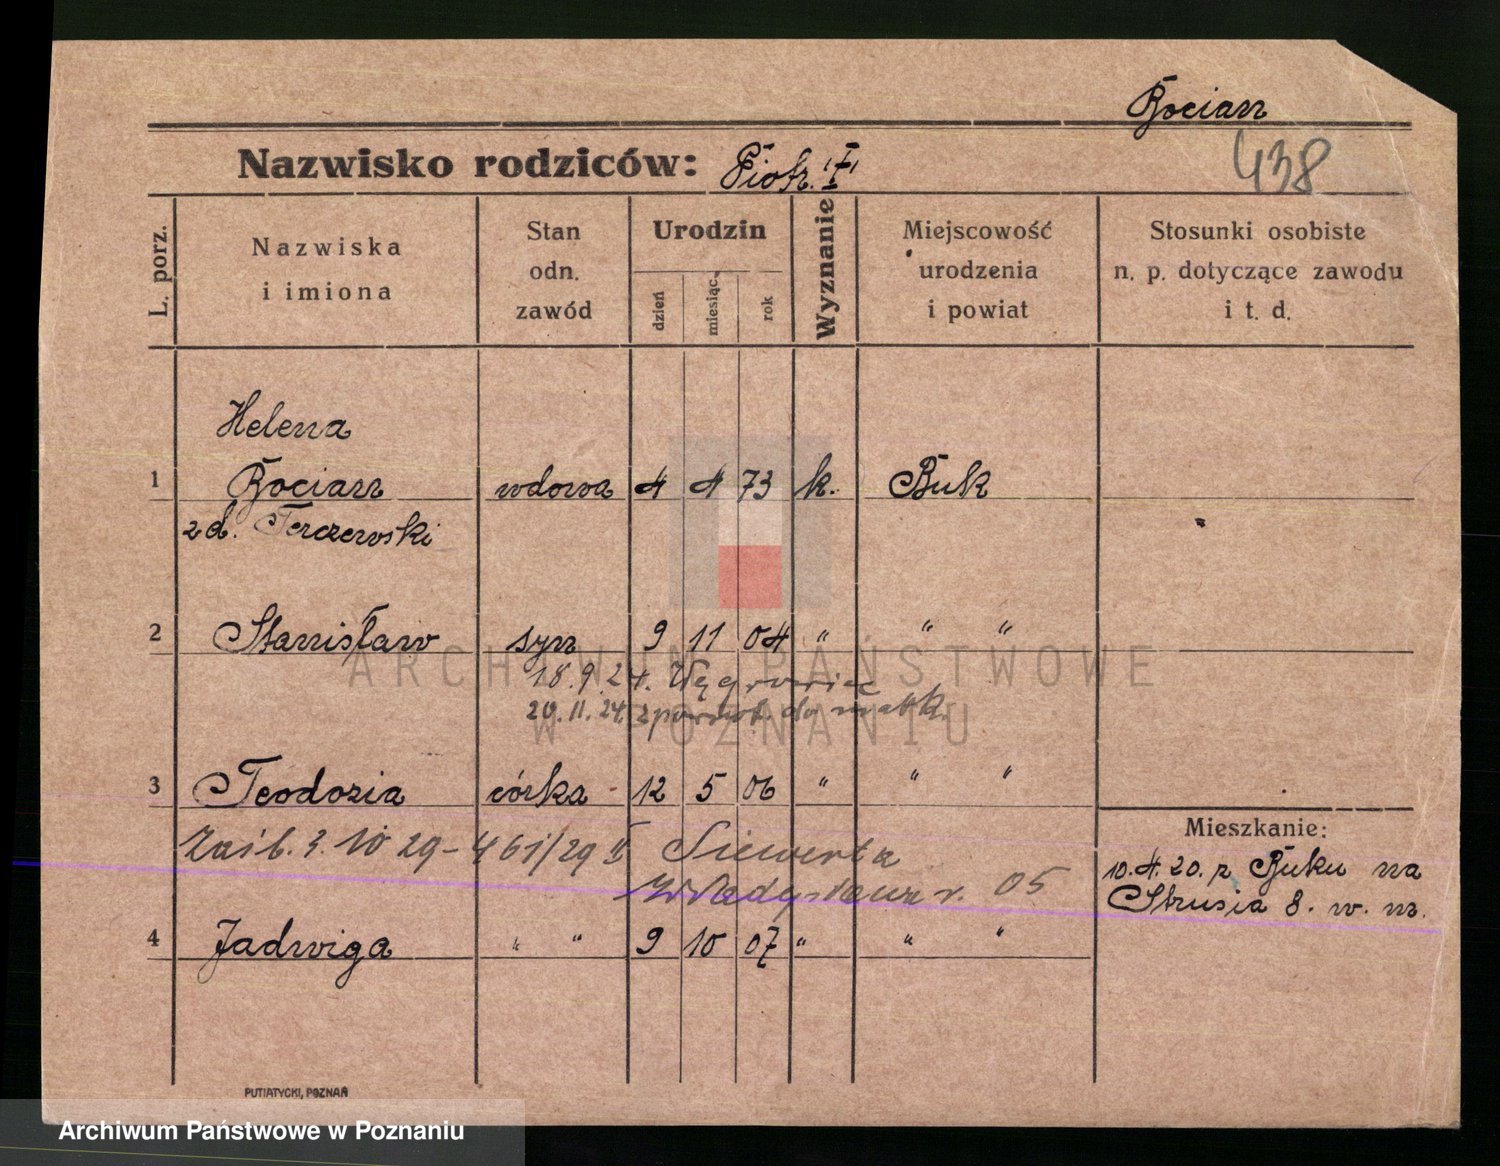 Bocian
Nazwisko rodziców: Piotr. "I"
438
L. porz.
Nazwiska i imiona
Stan odn. zawód
Urodzin
dzień
miesiąc
rok
Wyznanie
Miejscowość urodzenia i powiat
Stosunki osobiste n. p. dotyczące zawodu i t. d.
Helena
1 Bocian wdowa 4 4 73 k. Buk
zd. Terczewski
2 Stanisław syn 9 11 04 " " "
18.9.24. Węgrowiec
20.11.24 z powrot. do matk.
3 Teodozia córka 12 5 06 " " "
Zaśl. 3. 10 29 - 461/29 II Siewerta
Władysława r. 05
4 Jadwiga " " 9 10 07 " " "
Mieszkanie:
10.4.20. z Buku na
Strusia 8. w. m.
PUTIATYCKI, POZNAŃ
ARCHIWUM PAŃSTWOWE
W POZNANIU
Archiwum Państwowe w Poznaniu